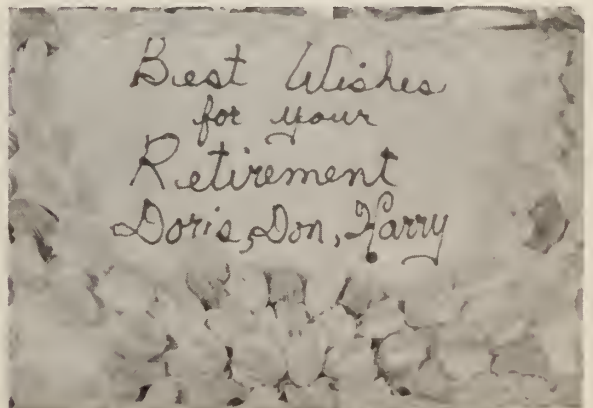 Best Wishes
for your
Retirement
Doris, Don, Harry